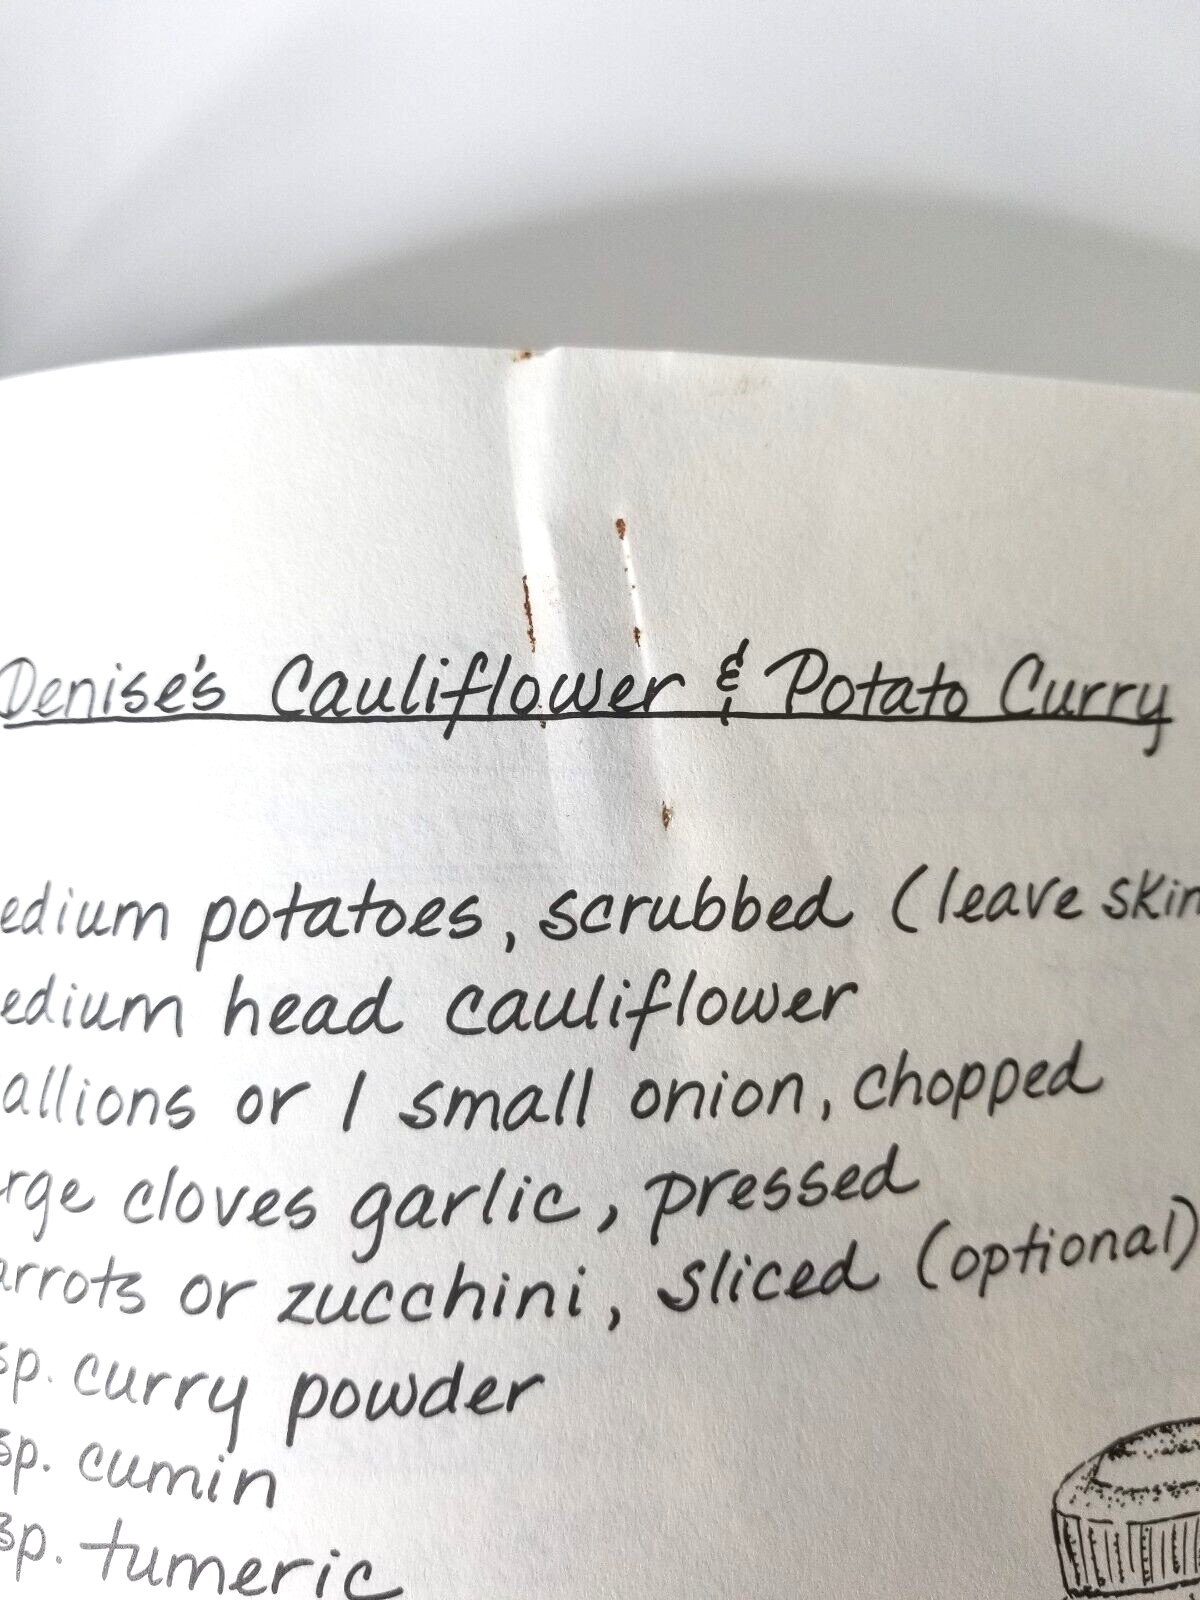 Denise's Cauliflower & Potato Curry
edium potatoes, scrubbed (leave skin
edium head cauliflower
allions or 1 small onion, chopped
rge cloves garlic, pressed
arrots or zucchini, sliced (optional)
sp. curry powder
sp. cumin
sp. tumeric